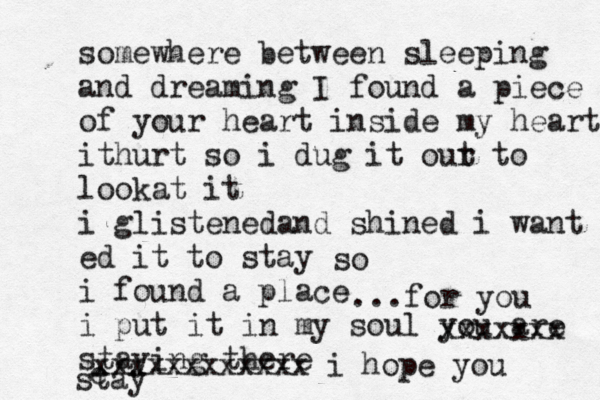 somewhere between sleeping
and dreaming I found a piece
of your heart inside my heart
ithurt so i dug it out to
lookat it
i glistenedand shined i want
ed it to stay so
i found a place...for you
i put it in my soul you are
staying there i hope you
stay